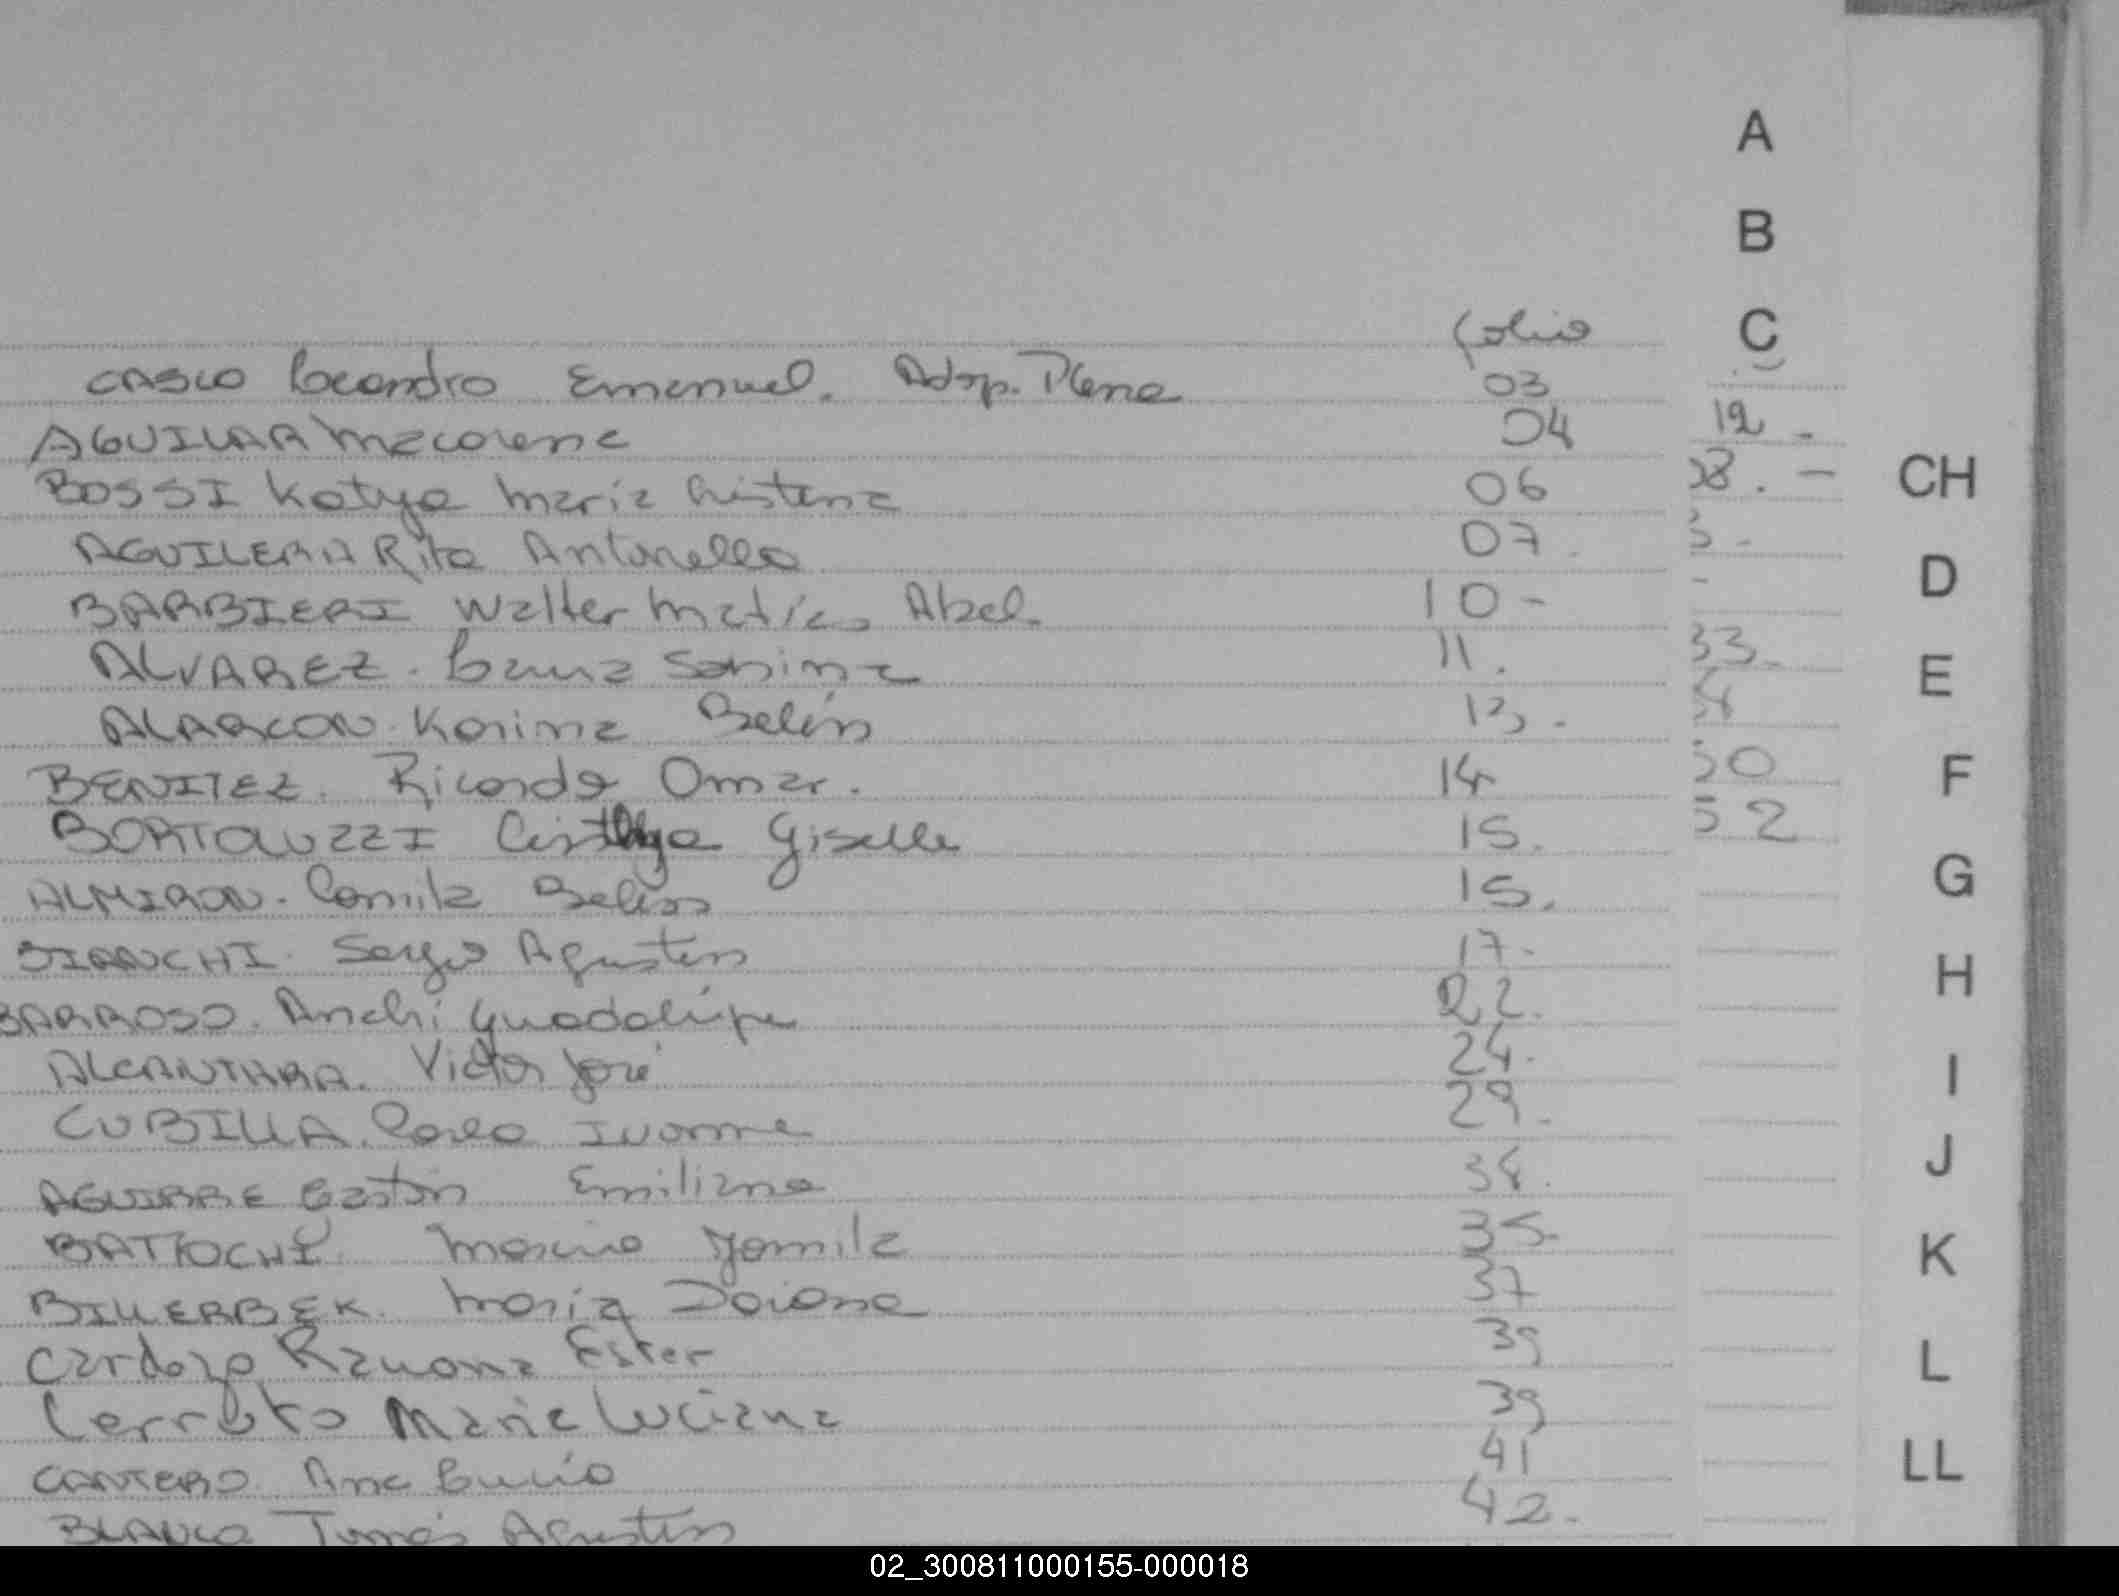 A
B
C
folio
CASCO Leandro Emanuel. Adop. Plena 03
AGUILAR Macarena 04 12 -
BOSSI Katya Maria Cristina 06 38. -
AGUILERA Rita Antonella 07. -
BARBIERI Walter Matias Abel. 10 - -
ALVAREZ. Laura Sabina 11. 33.
ALARCON. Karina Belén 13.
BENITEZ. Ricardo Omar. 14 50
BORTOLUZZI Cinthya Giselle 15. 52
ALMIRON. Camila Belén 15.
BIANCHI. Sergio Agustin 17.
BARROSO. Anahi Guadalupe 22.
ALCANTARA. Victor José 24.
CUBILLA. Carla Ivonne 29.
AGUIRRE Gastón Emiliano 34.
BATTOCHI. Yamila 35.
BILLERBEK. Maria Daiana 37
Cardozo Ramona Ester 39
Cerruto Maria Luciana 39
CANTERO. Ana Lucia 41
BLANCO Tomás Agustin 42.
CH
D
E
F
G
H
I
J
K
L
LL
02_300811000155-000018